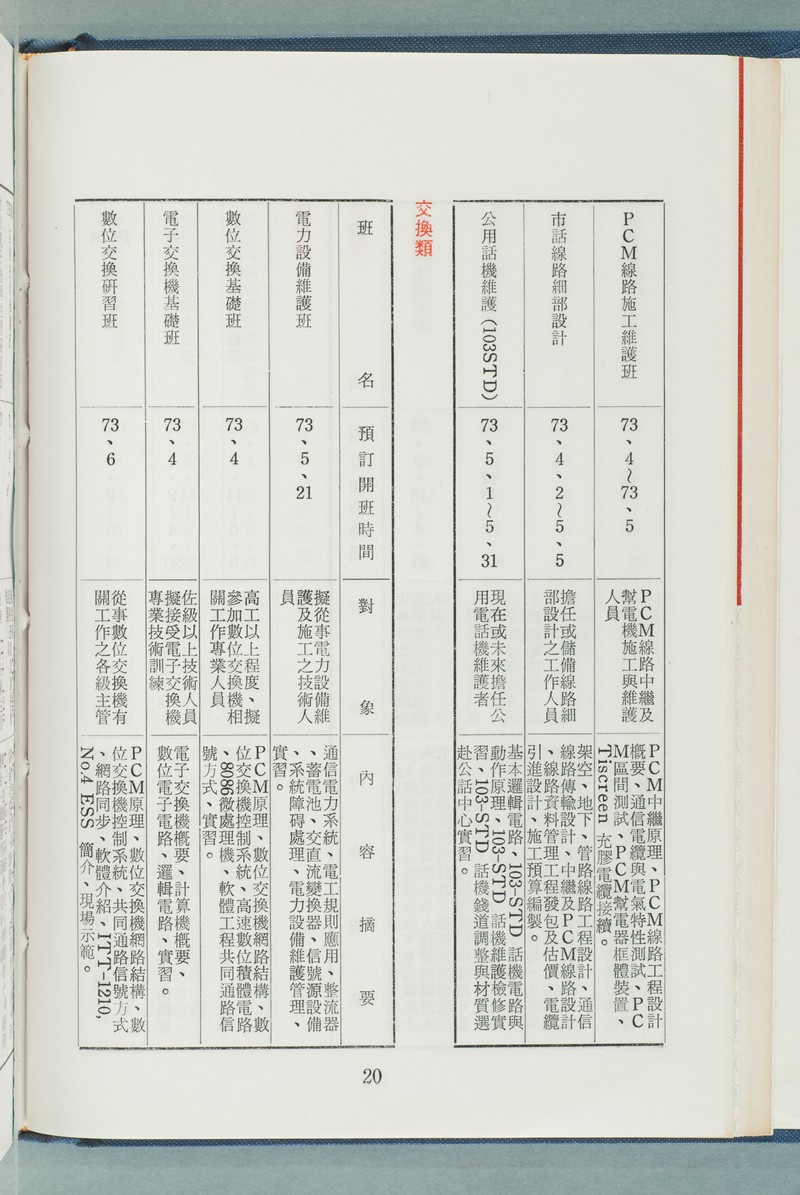 PCM線路施工維護班
73、4～73、5
PCM線路中繼及
幫電機施工與維護
人員
PCM中繼原理、PCM線路工程設計
概要、通信電纜與電氣特性測試、PC
M區間測試、PCM幫電器框體裝置、
Tiscreen 充膠電纜接續。
市話線路細部設計
73、4、2～5、5
擔任或儲備線路細
部設計之工作人員
架空、地下、管路線路工程設計、通信
線路傳輸設計、中繼及PCM線路設計
、線路資料管理工程發包及估價、電纜
引進設計、施工預算編製。
公用話機維護（103STD）
73、5、1～5、31
現在或未來擔任公
用電話機維護者
基本邏輯電路、103-STD 話機電路與
動作原理、103-STD 話機維護檢修實
習、103-STD 話機錢道調整與材質選
赴公話中心實習。
交換類
班名
預訂開班時間
對象
內容摘要
電力設備維護班
73、5、21
擬從事電力設備維
護及施工之技術人
員
通信電力系統、電工規則應用、整流器
、蓄電池、交直流變換器、信號源設備
、系統障碍處理、電力設備維護管理、
實習。
數位交換基礎班
73、4
高工以上程度、擬
參加數位交換機相
關工作專業人員
PCM原理、數位交換機網路結構、數
位交換機控制系統、高速數位積體電路
、8086微處理機、軟體工程共同通路信
號方式、實習。
電子交換機基礎班
73、4
佐級以上技術人員
擬接受電子交換機
專業技術訓練
電子交換機概要、計算機概要、
數位電子電路、邏輯電路、實習。
數位交換研習班
73、6
從事數位交換機有
關工作之各級主管
PCM原理、數位交換機網路結構、數
位交換機控制系統、共同通路信號方式
、網路同步、軟體介紹、ITT-1210,
No.4 ESS 簡介、現場示範。
20